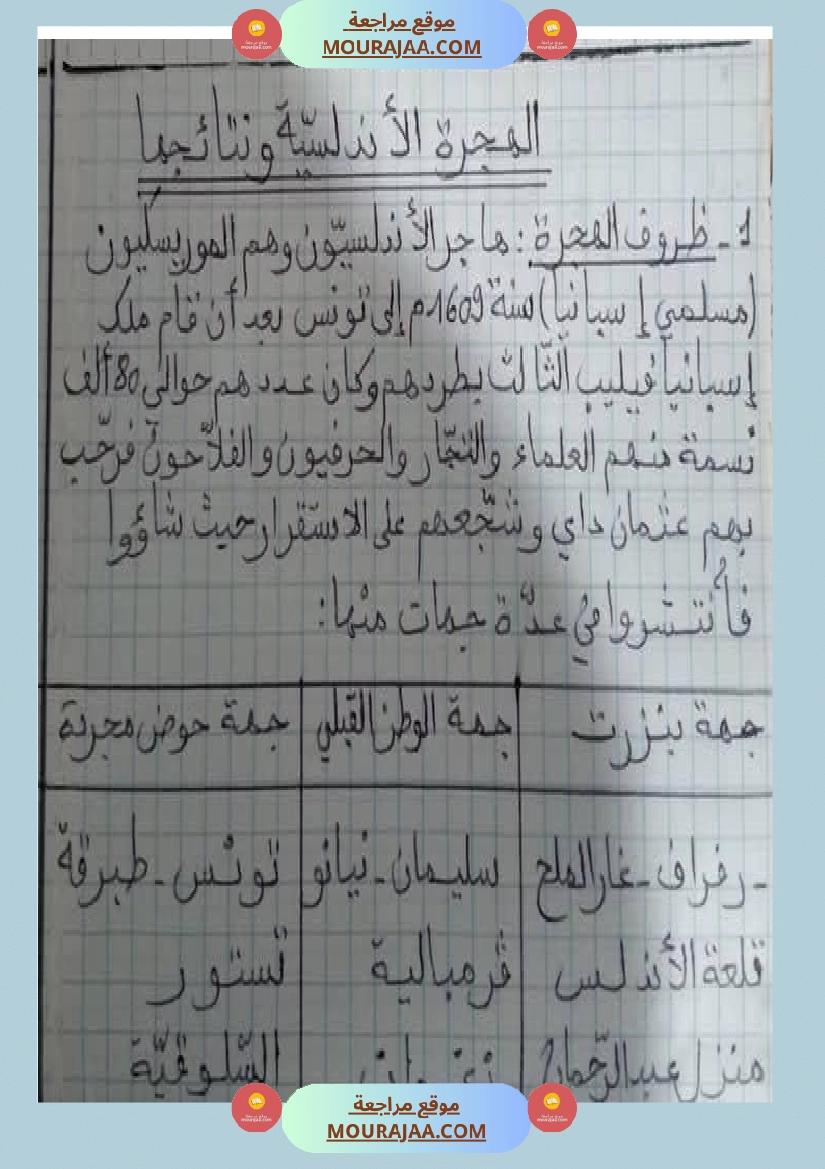 موقع مراجعة
MOURAJAA.COM
الهجرة الأندلسيّة ونتائجها
1 - ظروف الهجرة : هاجر الأندلسيّون وهم الموريسكيون
(مسلمي إسبانيا) سنة 1609م إلى تونس بعد أن قام ملك
إسبانيا فيليب الثّالث بطردهم وكان عددهم حوالي 80 ألف
نسمة منهم العلماء والتجّار والحرفيون والفلاّحون فرحّب
بهم عثمان داي وشجّعهم على الاستقرار حيث شاؤوا
فأنتشروا في عدّة جهات منها:
جهة بنزرت | جهة الوطن القبلي | جهة حوض مجردة
- رفراف - غار الملح | سليمان - نيانو | تونس - طبرقة
قلعة الأندلس | قرمبالية | تستور
منزل عبد الرّحمان | زغوان | السّلوقيّة
موقع مراجعة
MOURAJAA.COM